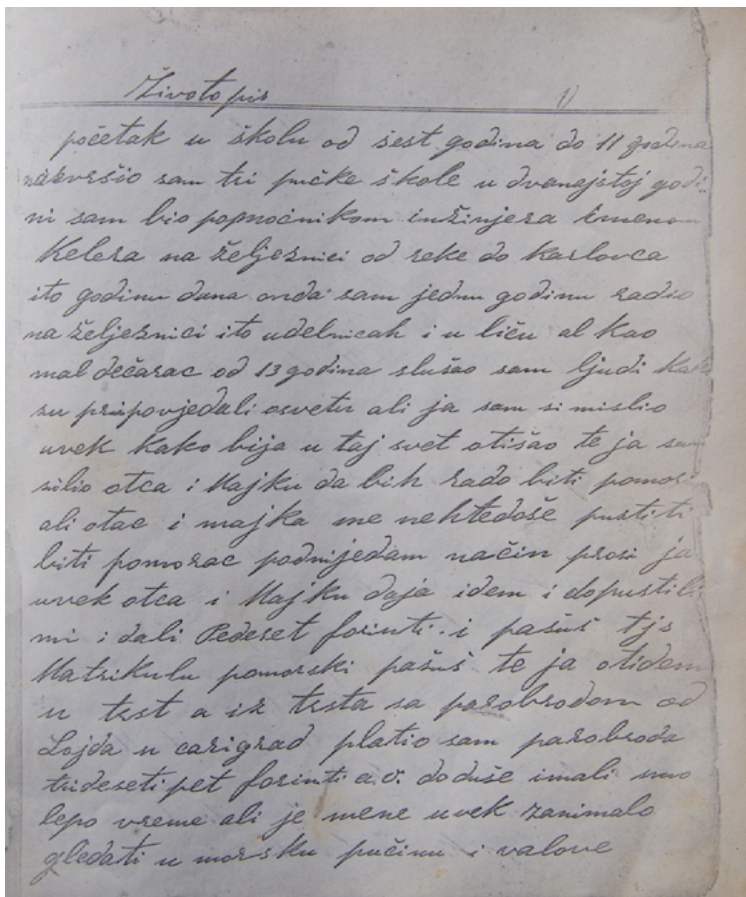 Životopis 1)
početak u školu od šest godina do 11 godina
nazvršio sam tri pučke škole u dvanajstoj godi-
ni sam bio popmoćnikom inžinjera imenom
Kelera na željeznici od reke do Karlovca
ito godinu dana onda sam jednu godinu radio
na željeznici ito udelnicah i u liču al kao
mal dečarac od 13 godina slušao sam ljudi Kak
su pripovjedali osvetu ali ja sam si mislio
uvek kako bija u taj svet otišao te ja sam
silio otca i Majku da bih rado biti pomor
ali otac i majka me nehtedoše pustiti
biti pomorac podnijedam način prosi ja
uvek otca i Majku daja idem i dopustili
mi i dali Pedeset forinti i pašuš tjs
Matrikulu pomorski pašuš te ja otidem
u trst a iz trsta sa parobrodom od
Lojda u carigrad platio sam parobroda
trideseti pet forinti a.v. doduše imali smo
lepo vreme ali je mene uvek zanimalo
gledati u morsku pučinu i valove